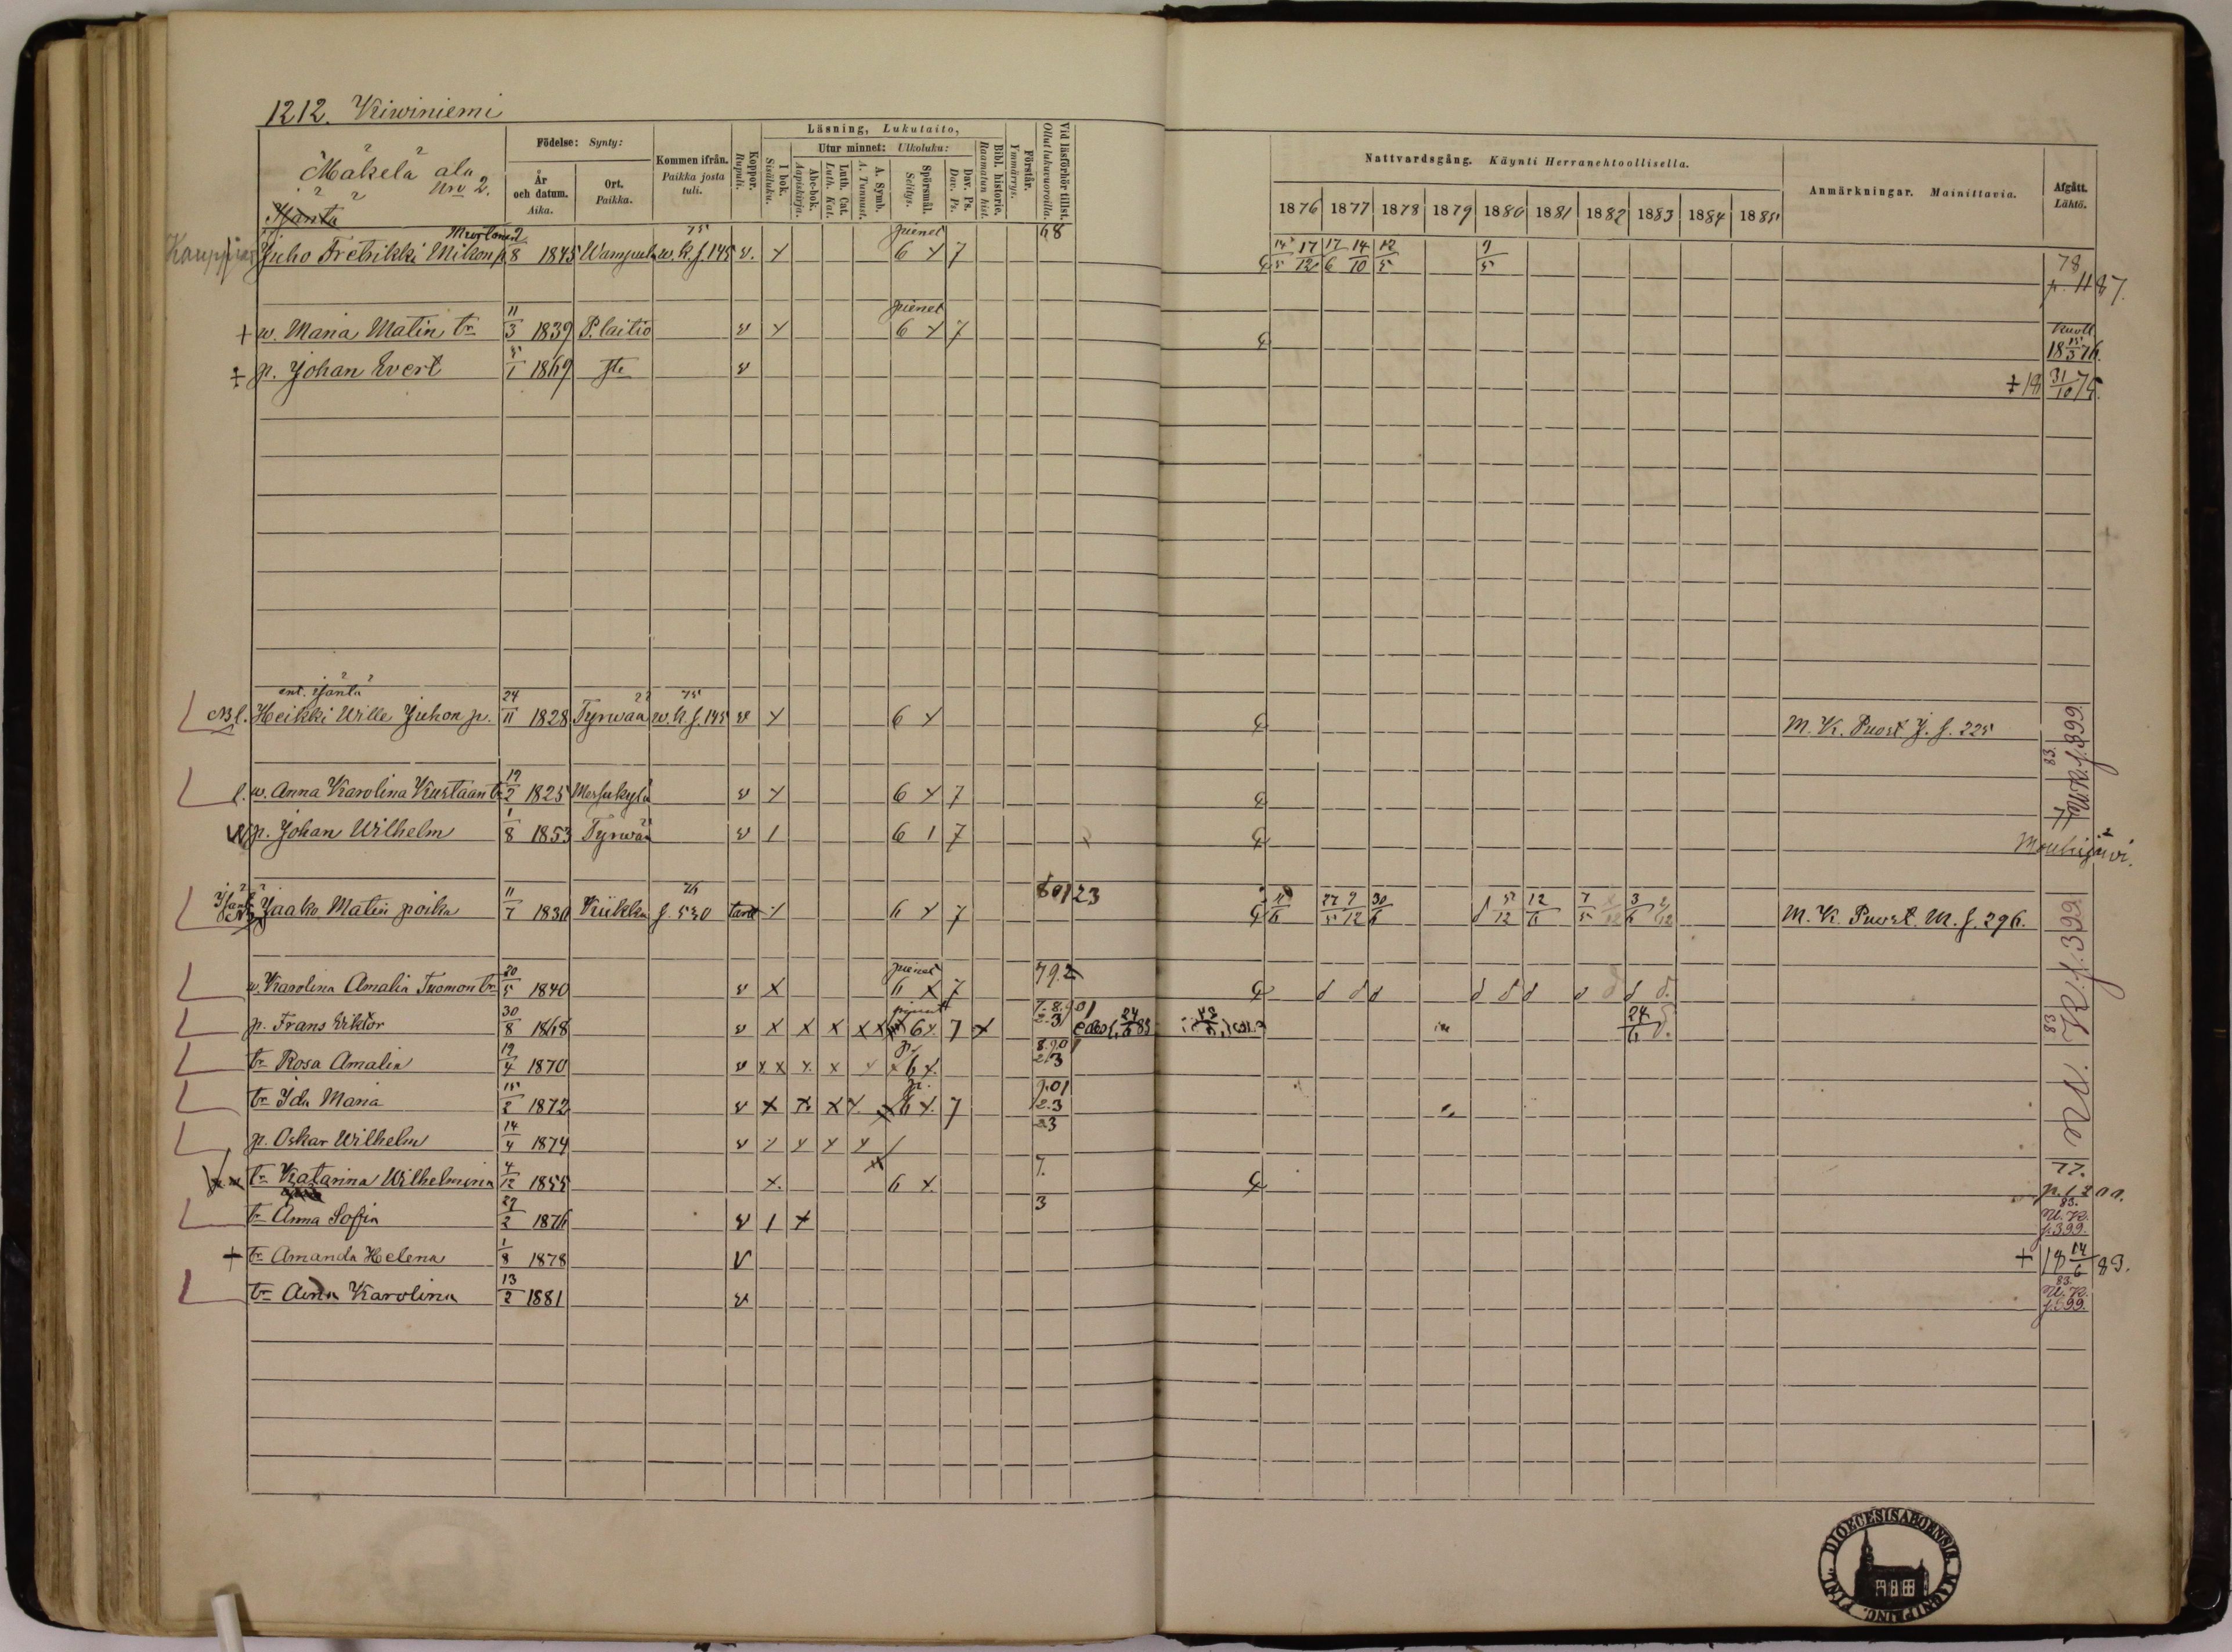 1212. Kiwiniemi
Mäkelä ala Nro 2.
Födelse: Synty:
År och datum. Aika.
Ort. Paikka.
Kommen ifrån. Paikka josta tuli.
Koppor. Rupuli.
Läsning, Lukutaito,
I bok. Sisäluku.
Utur minnet: Ulkoluku:
Abc-bok. Aapiskirja.
Luth. Cat. Luth. Kat.
A. Symb. A. Tunnust.
Spörsmål. Selitys.
Dav. Ps. Dav. Ps.
Bibl. historie. Raamatun hist.
Förstår. Ymmärrys.
Vid läsförhör tillst. Ollut lukuvuoroilla.
Nattvardsgång. Käynti Herranehtoollisella.
1876 1877 1878 1879 1880 1881 1882 1883 1884 1885
Anmärkningar. Mainittavia.
Afgått. Lähtö.
Isäntä
Kauppias Juho Fredrikki Mikon p. 2/8 1845 w. k. f. 145 75 v. pienet 6 7 68 14/5 17/12 17/6 14/10 12/5 9/5 78 p. 1187.
+ w. Maria Matin tr 11/3 1839 P. laitio v pienet 6 7 kuoll. 18 15/5 76.
+ p. Johan Evert 5/1 1869 v + 18 31/10 75.
ent. isäntä
l. Heikki Wille Juhon p. 24/11 1828 Tyrwää w. k. f. 145 75 v 6 M. K. Puost J. f. 225
l. w. Anna Karolina Kustaan tr 19/2 1825 Messukylä v 6 7 83. U. K. f. 399.
p. Johan Wilhelm 1/8 1853 Tyrwää v 1 6 1 7 Mouhijärvi.
Isänt. Jaako Matin poika 11/7 1830 Kiikka 76 f. 530 6 7 80123 11/6 27/5 9/12 30/6 5/12 12/6 7/5 3/6 2/12 M. K. Puost. M. f. 296.
w. Karolina Amalia Tuomon tr 20/5 1840 v x pienet 6 x 7 79.2
p. Frans Viktor 30/8 1868 v x x x x 6 x. 7 x 7.8.901 2.3 24/6 83 24/6
tr Rosa Amalia 19/4 1870 v x x x x 6 x. 8.90 2.3
tr Ida Maria 15/2 1872 v x x x x 6 x. 7 2.3
p. Oskar Wilhelm 14/4 1874 v x x x x 23
tr Katarina Wilhelmina 4/12 1855 x. 6 x. 7. 77. p. 1200.
tr Anna Sofia 29/2 1876 v 1 x 3 83. U. K. f. 399.
+ tr Amanda Helena 1/8 1878 v + 18 14/6 83.
tr Aina Karolina 13/2 1881 v 83. U. K. f. 399.
83 U. K. f. 399.
DIOECESIS ABOENSIS. MAGNI PRINC. FINL.